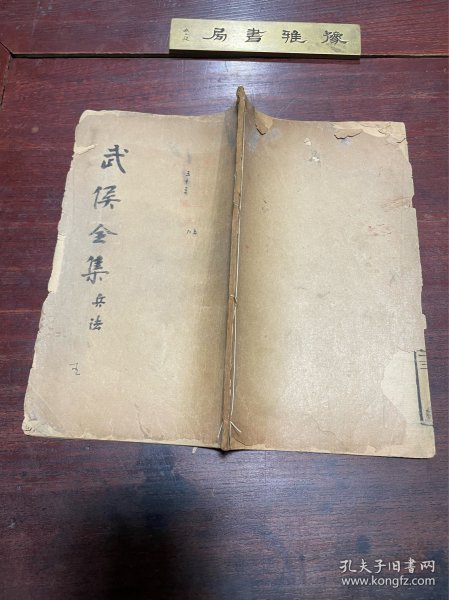 豫雅書局
武侯全集兵法
二三
孔夫子旧书网
www.kongfz.com